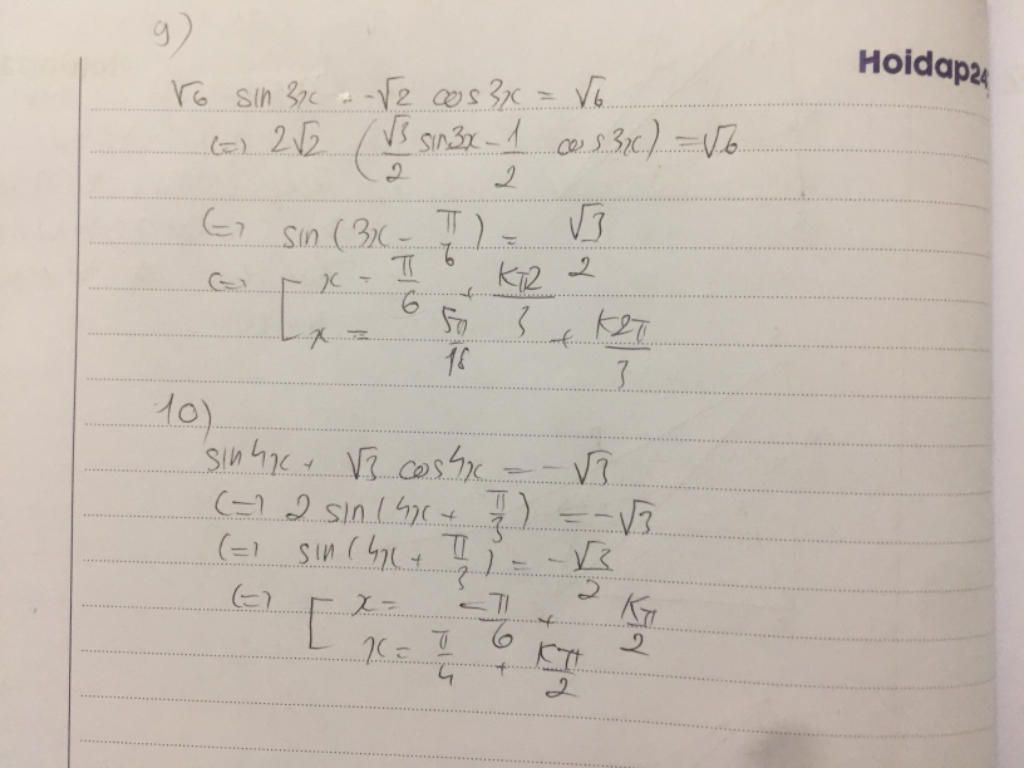 9)
Hoidap24
√6 sin 3x - √2 cos 3x = √6
(=) 2√2 (√3/2 sin3x - 1/2 cos3x) = √6
(=) sin (3x - π/6) = √3/2
(=) [ x = π/6 + kπ2/3
x = 5π/18 + k2π/3
10)
sin4x + √3 cos4x = -√3
(=) 2 sin(4x + π/3) = -√3
(=) sin(4x + π/3) = -√3/2
(=) [ x = -π/6 + kπ/2
x = π/4 + kπ/2